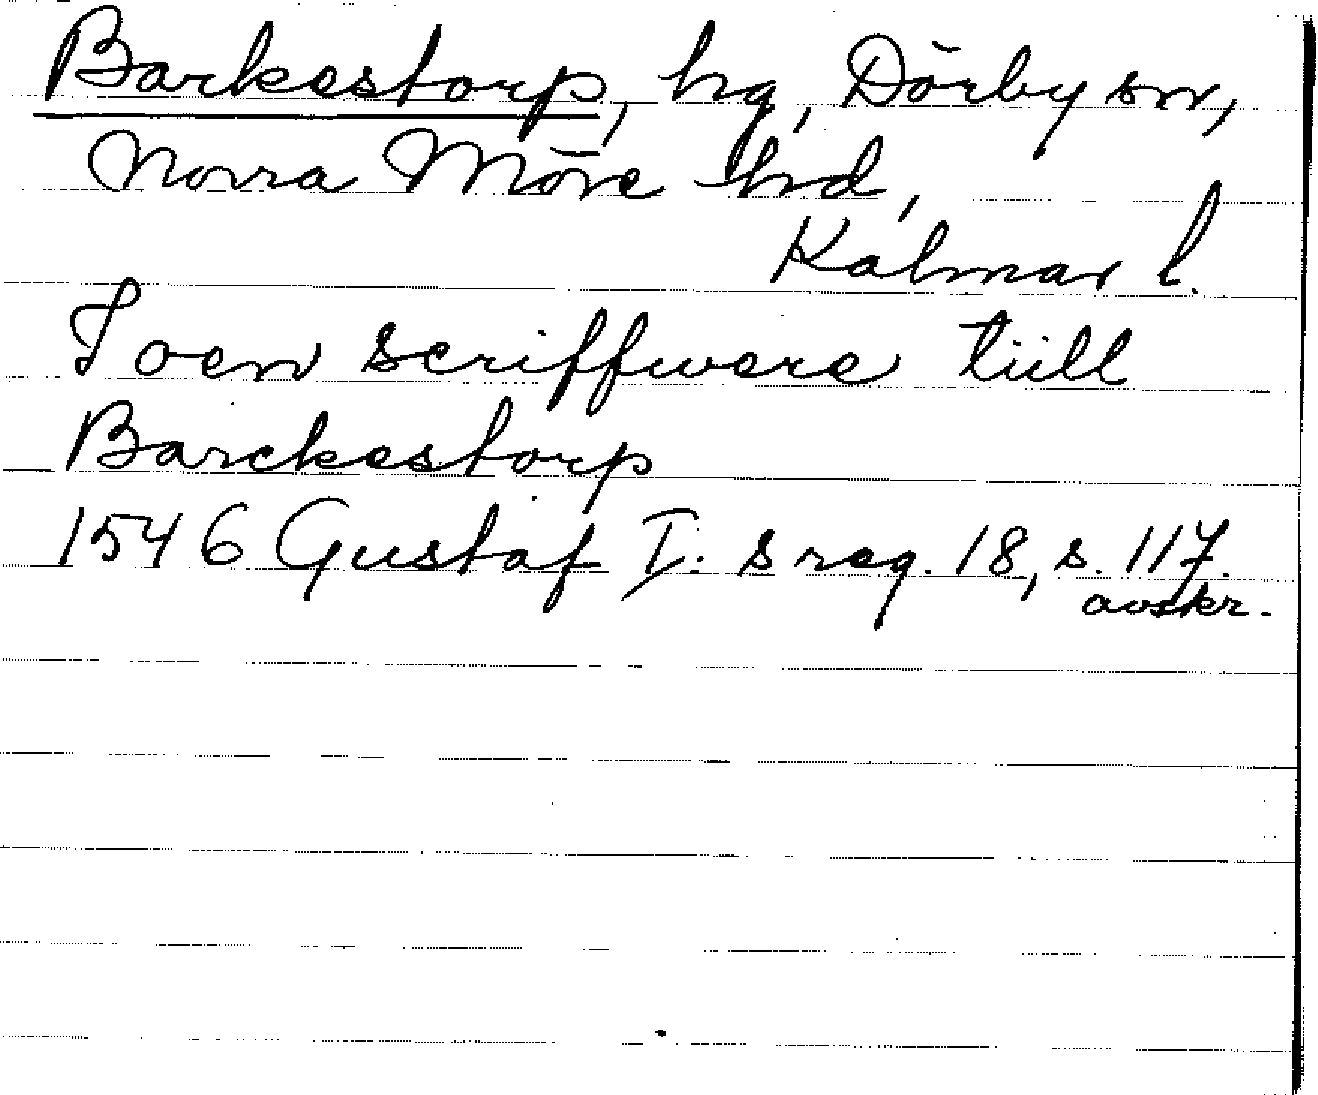 Barkestorp, hg, Dörby sn,
Norra Möre hd,
Kalmar l.
Joen scriffwere tiill
Barckestorp
1546 Gustaf I: s reg. 18, s. 117.
avskr.